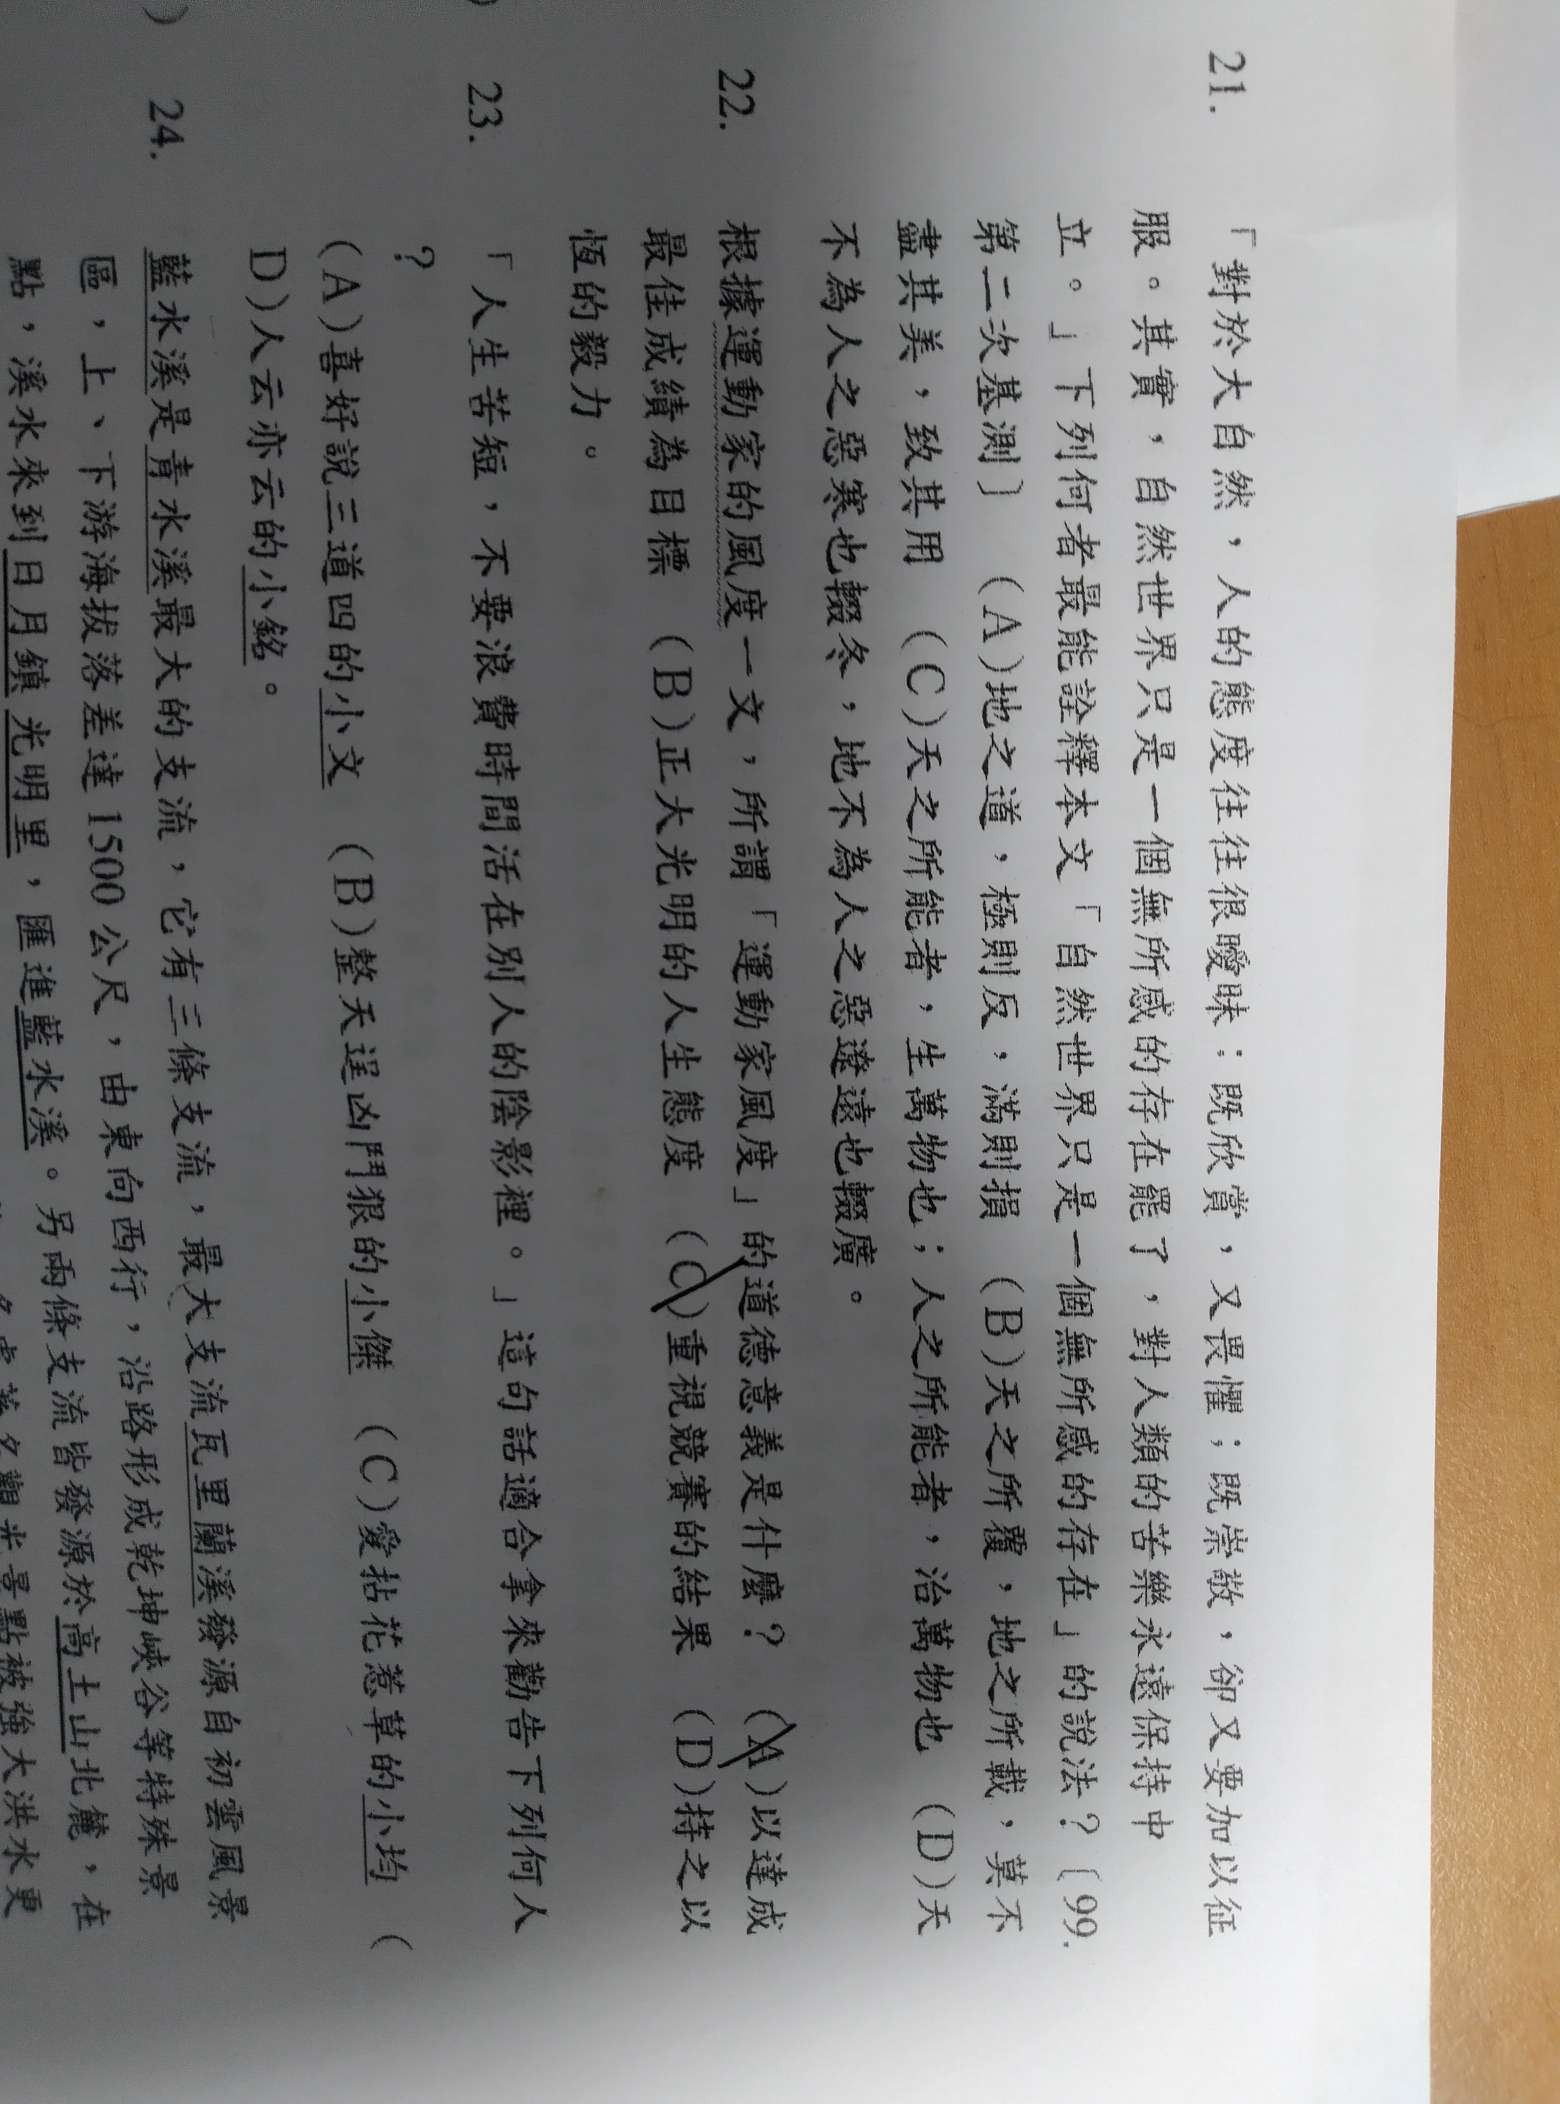 21. 「對於大自然，人的態度往往很曖昧：既欣賞，又畏懼；既崇敬，卻又要加以征
服。其實，自然世界只是一個無所感的存在罷了，對人類的苦樂永遠保持中
立。」下列何者最能詮釋本文「自然世界只是一個無所感的存在」的說法？〔99.
第二次基測〕 (A)地之道，極則反，滿則損 (B)天之所覆，地之所載，莫不
盡其美，致其用 (C)天之所能者，生萬物也；人之所能者，治萬物也 (D)天
不為人之惡寒也輟冬，地不為人之惡遼遠也輟廣。
22. 根據運動家的風度一文，所謂「運動家風度」的道德意義是什麼？ (A)以達成
最佳成績為目標 (B)正大光明的人生態度 (C)重視競賽的結果 (D)持之以
恆的毅力。
) 23. 「人生苦短，不要浪費時間活在別人的陰影裡。」這句話適合拿來勸告下列何人
？
(A)喜好說三道四的小文 (B)整天逞凶鬥狠的小傑 (C)愛拈花惹草的小均 (
D)人云亦云的小銘。
) 24. 藍水溪是青水溪最大的支流，它有三條支流，最大支流瓦里蘭溪發源自初雲風景
區，上、下游海拔落差達1500公尺，由東向西行，沿路形成乾坤峽谷等特殊景
點，溪水來到日月鎮光明里，匯進藍水溪。另兩條支流皆發源於高土山北麓，在
多處著名觀光景點被強大洪水更